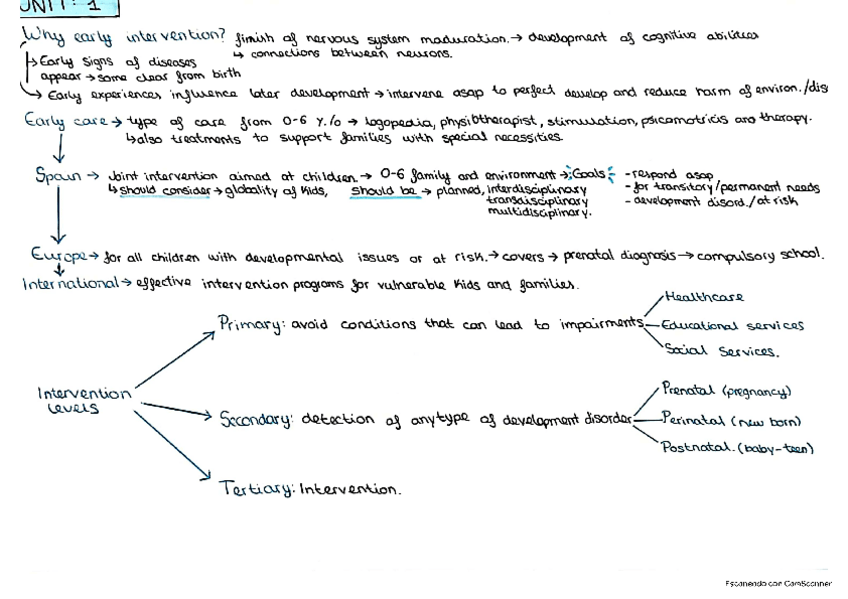 UNIT: 1
Why early intervention? finish of nervous system maduration. → development of cognitive abilities
→ Early signs of diseases ↳ connections between neurons.
appear → some clear from birth
→ Early experiences influence later development → intervene asap to perfect develop and reduce harm of environ./dis
Early care → type of care from 0-6 y./o → logopedia, physiotherapist, stimulation, psicomotricis and therapy.
↳ also treatments to support families with special necessities.
Spain → Joint intervention aimed at children. → 0-6 family and environment → Goals: - respond asap
↳ should consider → globality of kids, should be → planned, interdisciplinary - for transitory/permanent needs
transdisciplinary - development disord./at risk
multidisciplinary.
Europe → for all children with developmental issues or at risk. → covers → prenatal diagnosis → compulsory school.
International → effective intervention programs for vulnerable kids and families.
Healthcare
Primary: avoid conditions that can lead to impairments Educational services
Social services.
Intervention levels
Prenatal (pregnancy)
Secondary: detection of anytype of development disorder Perinatal (new born)
Postnatal. (baby-teen)
Tertiary: Intervention.
Escaneado con CamScanner